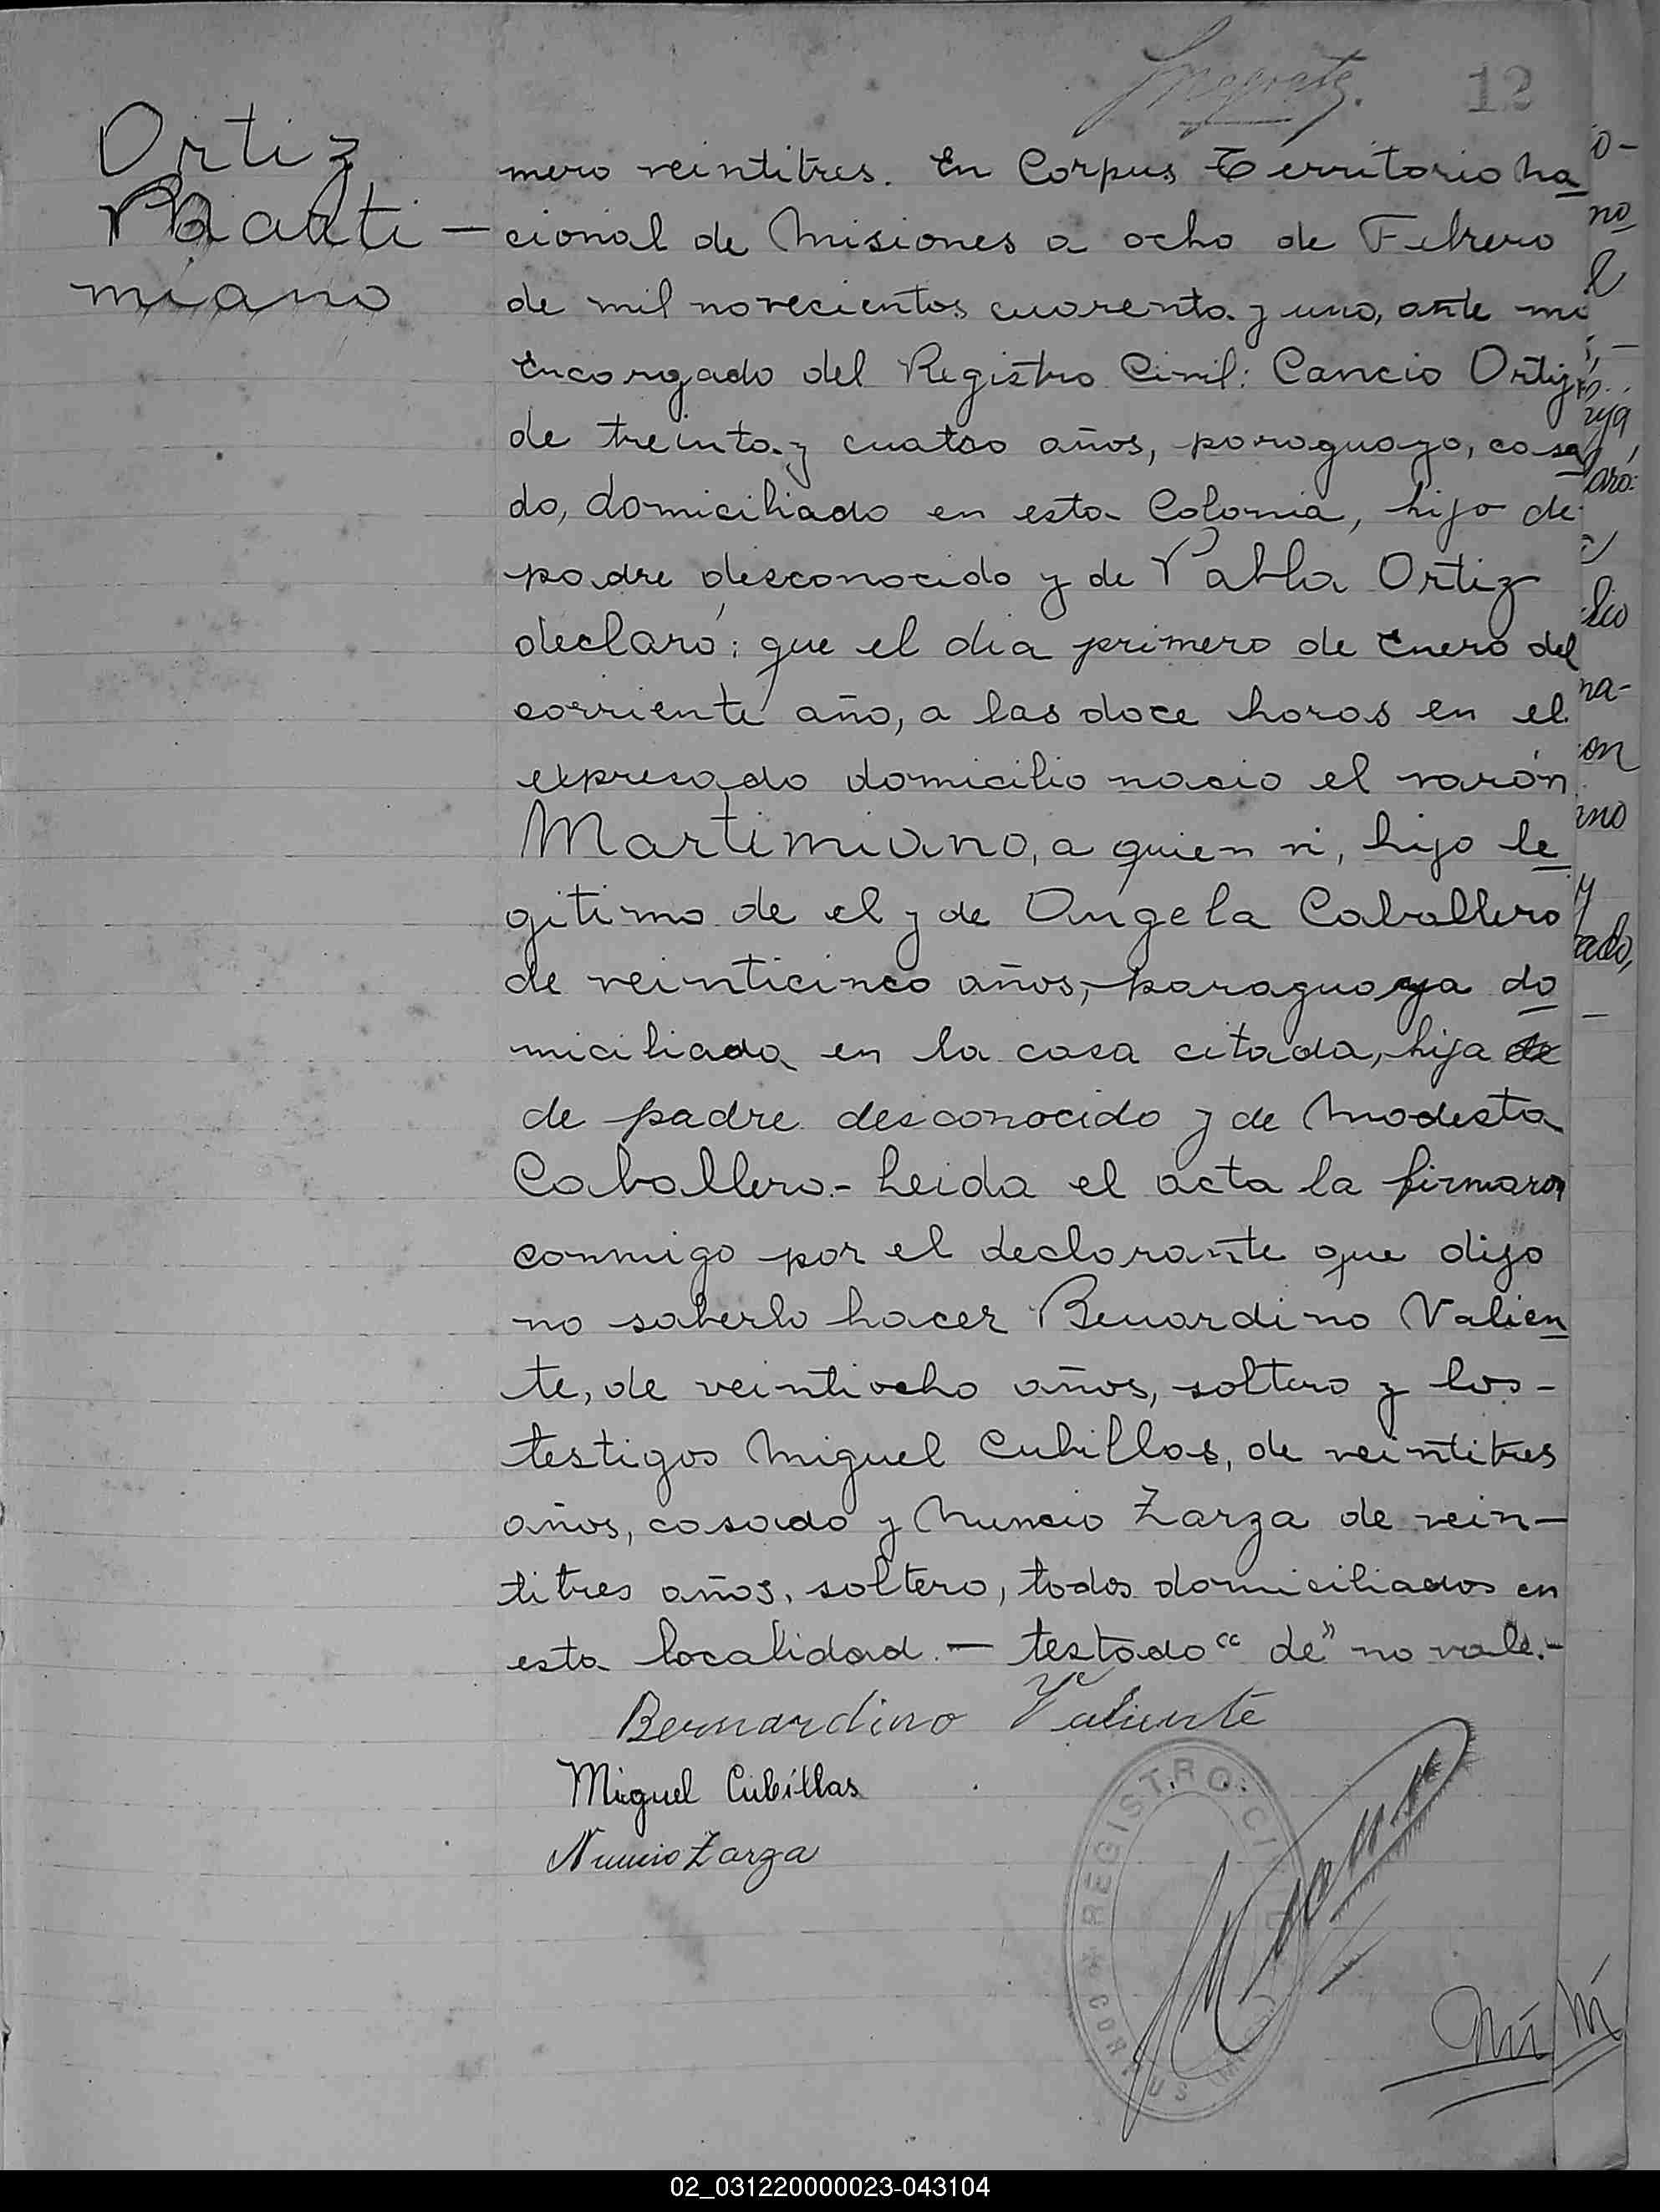 12
Ortiz
Marti-
miano
mero veintitres. En Corpus Territorio Na
cional de Misiones a ocho de Febrero
de mil novecientos cuarenta y uno, ante mi
Encargado del Registro Civil: Cancio Ortiz
de treinta y cuatro años, paraguayo, casa
do, domiciliado en esta Colonia, hijo de
padre desconocido y de Pabla Ortiz
declaró: que el dia primero de Enero del
corriente año, a las doce horas en el
expresado domicilio nacio el varón
Martimiano, a quien vi, hijo le
gitimo de el y de Angela Caballero
de veinticinco años, paraguaya do
miciliada en la casa citada, hija de
de padre desconocido y de Modesta
Caballero.- Leida el acta la firmaron
conmigo por el declarante que dijo
no saberlo hacer Bernardino Valien
te, de veintiocho años, soltero y los-
testigos Miguel Cubillas, de veintitres
años, casado y Nuncio Zarza de vein-
titres años, soltero, todos domiciliados en
esta localidad.- testado "de" no vale.-
Bernardino Valiente
Miguel Cubillas
Nuncio Zarza
REGISTRO CIVIL
CORPUS
02_031220000023-043104